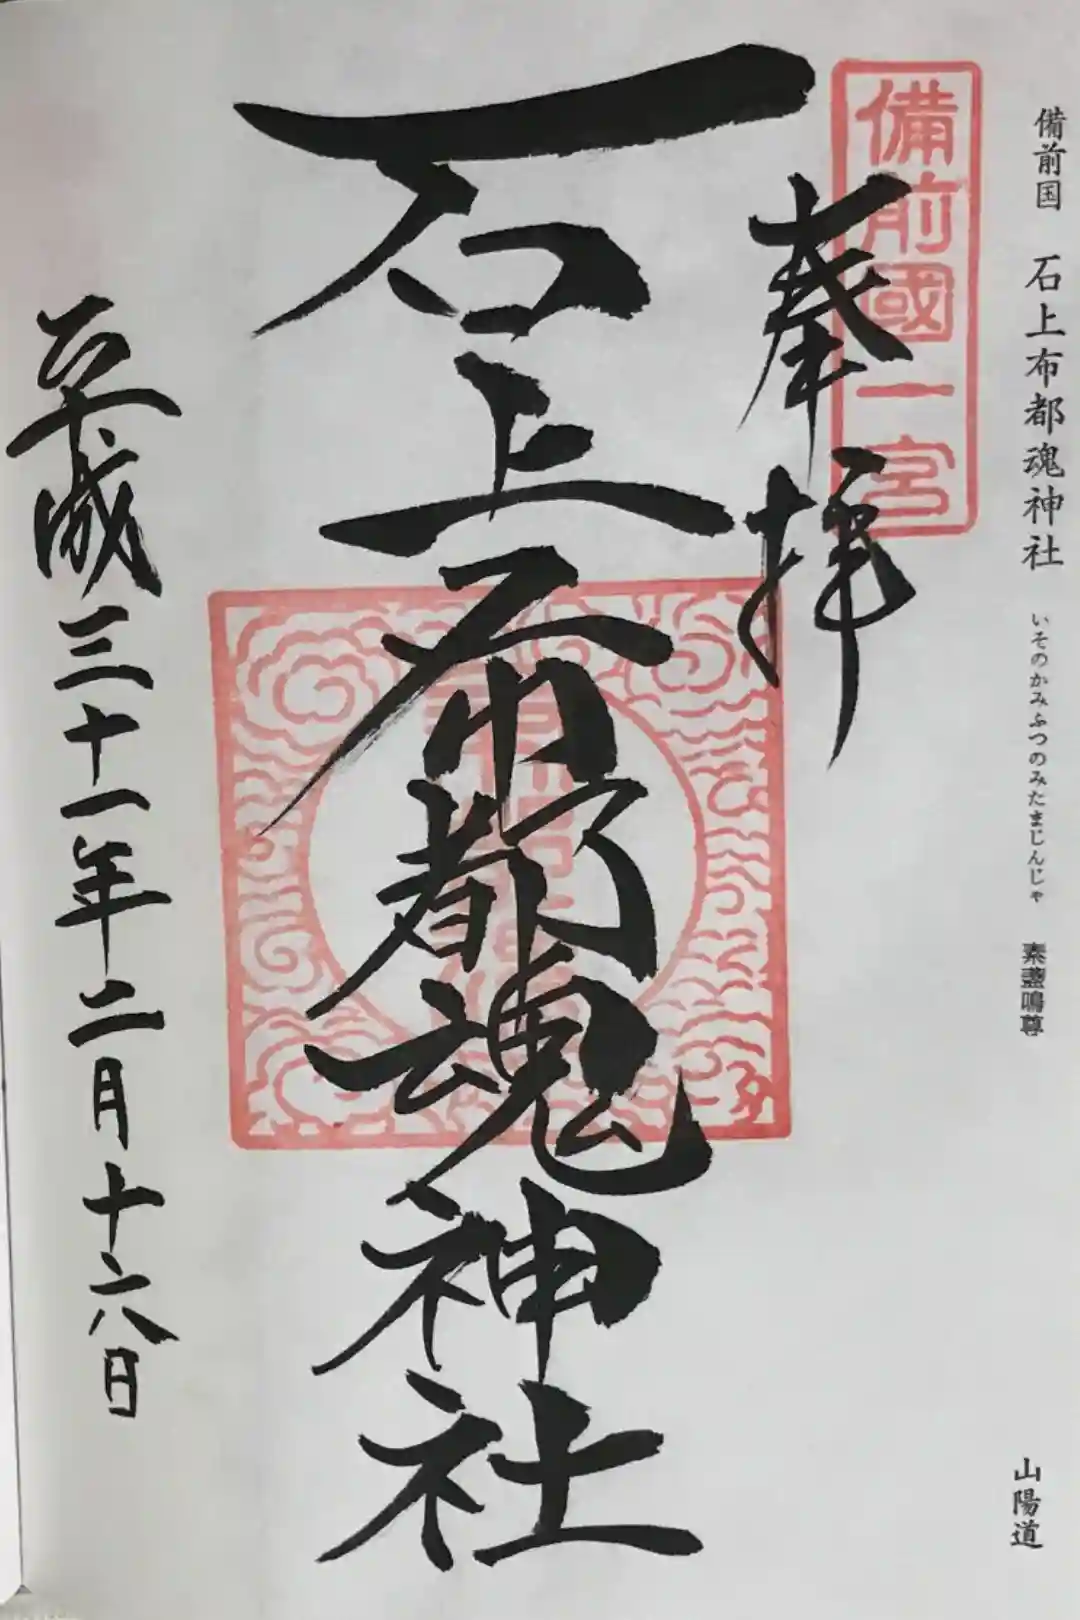 備前国 石上布都魂神社 いそのかみふつのみたまじんじゃ 素盞鳴尊
山陽道
備前國一宮
奉拝
石上布都魂神社
平成三十一年二月十六日